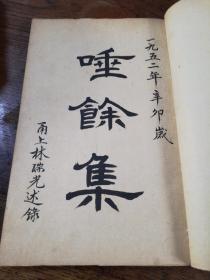 一九五二年辛卯歲
唾餘集
甬上林瑞光述錄